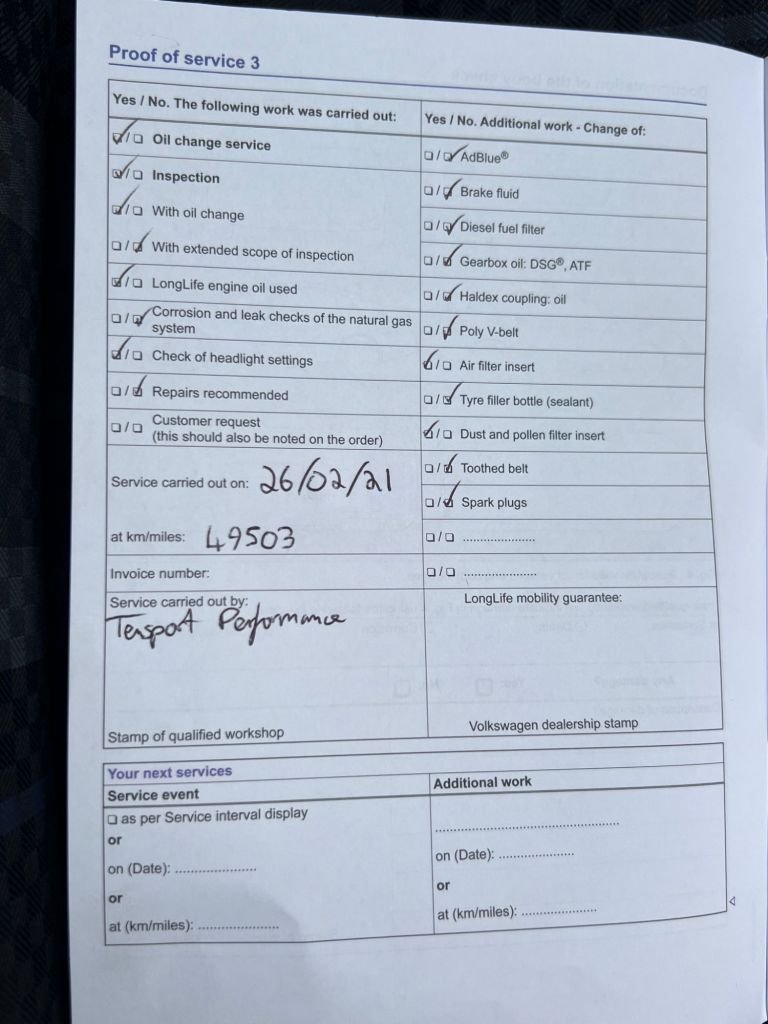 Proof of service 3
Yes / No. The following work was carried out:
☑/☐ Oil change service
☑/☐ Inspection
☑/☐ With oil change
☐/☑ With extended scope of inspection
☑/☐ LongLife engine oil used
☐/☑ Corrosion and leak checks of the natural gas
system
☑/☐ Check of headlight settings
☐/☑ Repairs recommended
☐/☐ Customer request
(this should also be noted on the order)
Service carried out on: 26/02/21
at km/miles: 49503
Invoice number:
Service carried out by:
Performance
Stamp of qualified workshop
Yes / No. Additional work - Change of:
☐/☑ AdBlue®
☐/☑ Brake fluid
☐/☑ Diesel fuel filter
☐/☑ Gearbox oil: DSG®, ATF
☐/☑ Haldex coupling: oil
☐/☑ Poly V-belt
☑/☐ Air filter insert
☐/☑ Tyre filler bottle (sealant)
☑/☐ Dust and pollen filter insert
☐/☑ Toothed belt
☐/☑ Spark plugs
☐/☐ .....................
☐/☐ .....................
LongLife mobility guarantee:
Volkswagen dealership stamp
Your next services
Service event
☐ as per Service interval display
or
on (Date): .....................
or
at (km/miles): .....................
Additional work
................................................
on (Date): ...................
or
at (km/miles): ...................